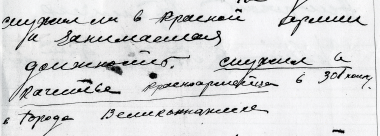 служил ли в красной Армии
и занимаемая
должность. служил в
качестве красноармейца в 30г полку.
в Города